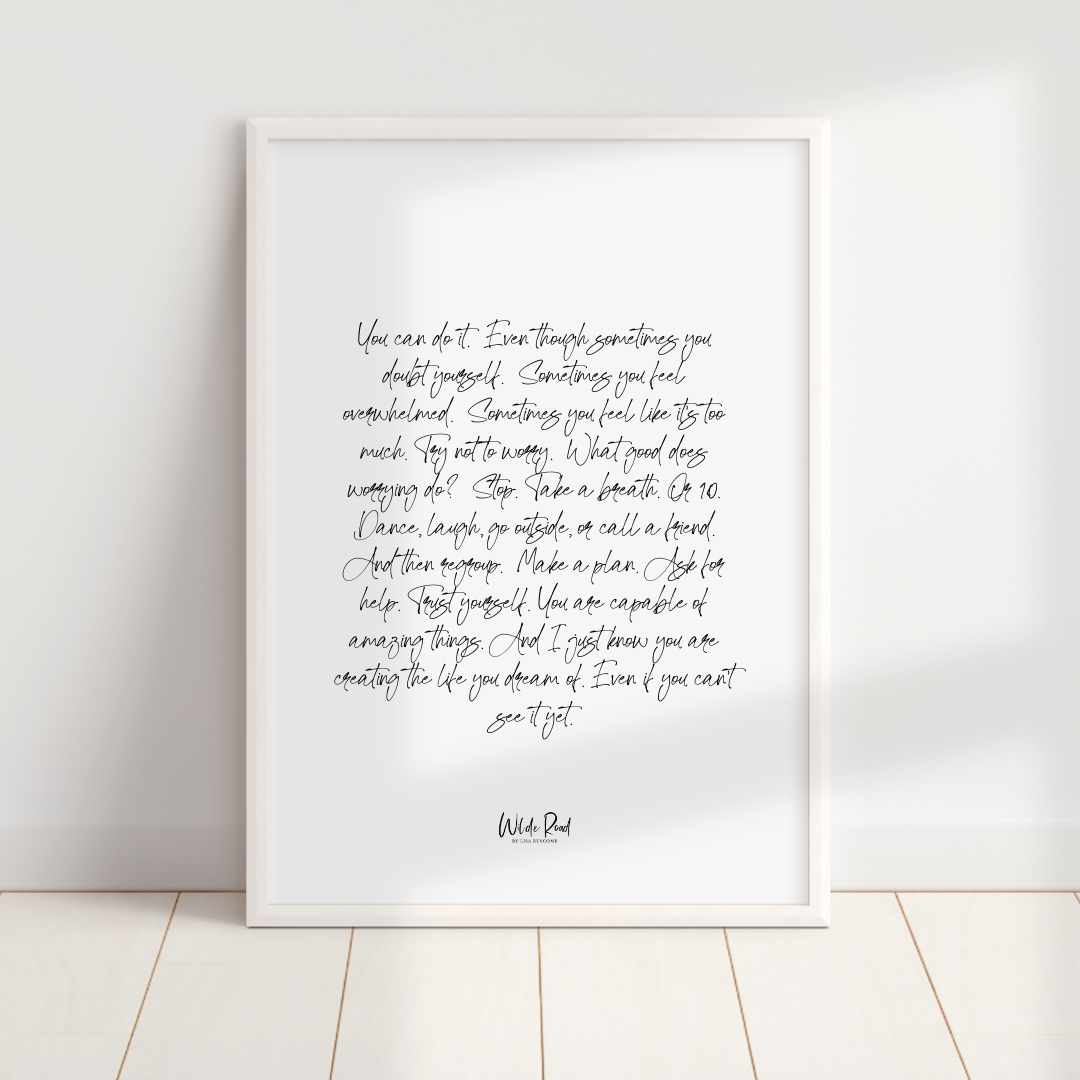 You can do it. Even though sometimes you
doubt yourself. Sometimes you feel
overwhelmed. Sometimes you feel like it's too
much. Try not to worry. What good does
worrying do? Stop. Take a breath. Or 10.
Dance, laugh, go outside, or call a friend.
And then regroup. Make a plan. Ask for
help. Trust yourself. You are capable of
amazing things. And I just know you are
creating the life you dream of. Even if you can't
see it yet.
Wilde Road
BY LISA BUSCOMB